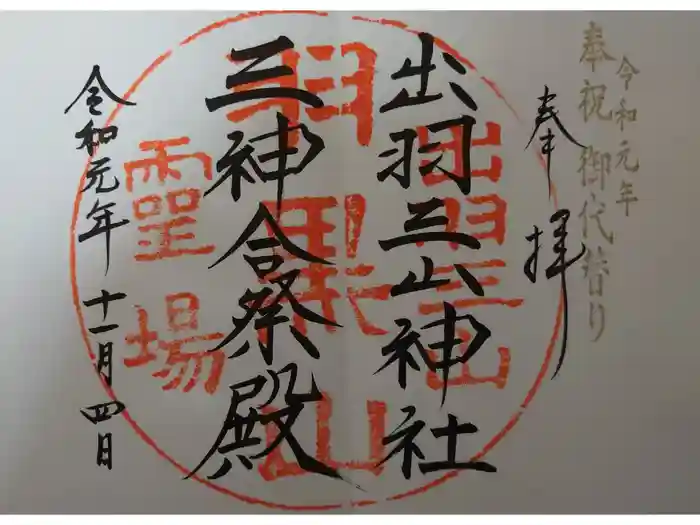 令和元年
奉祝 御代替り
奉拝
出羽三山神社
三神合祭殿
令和元年十一月四日
出羽三山
羽黒山
霊場